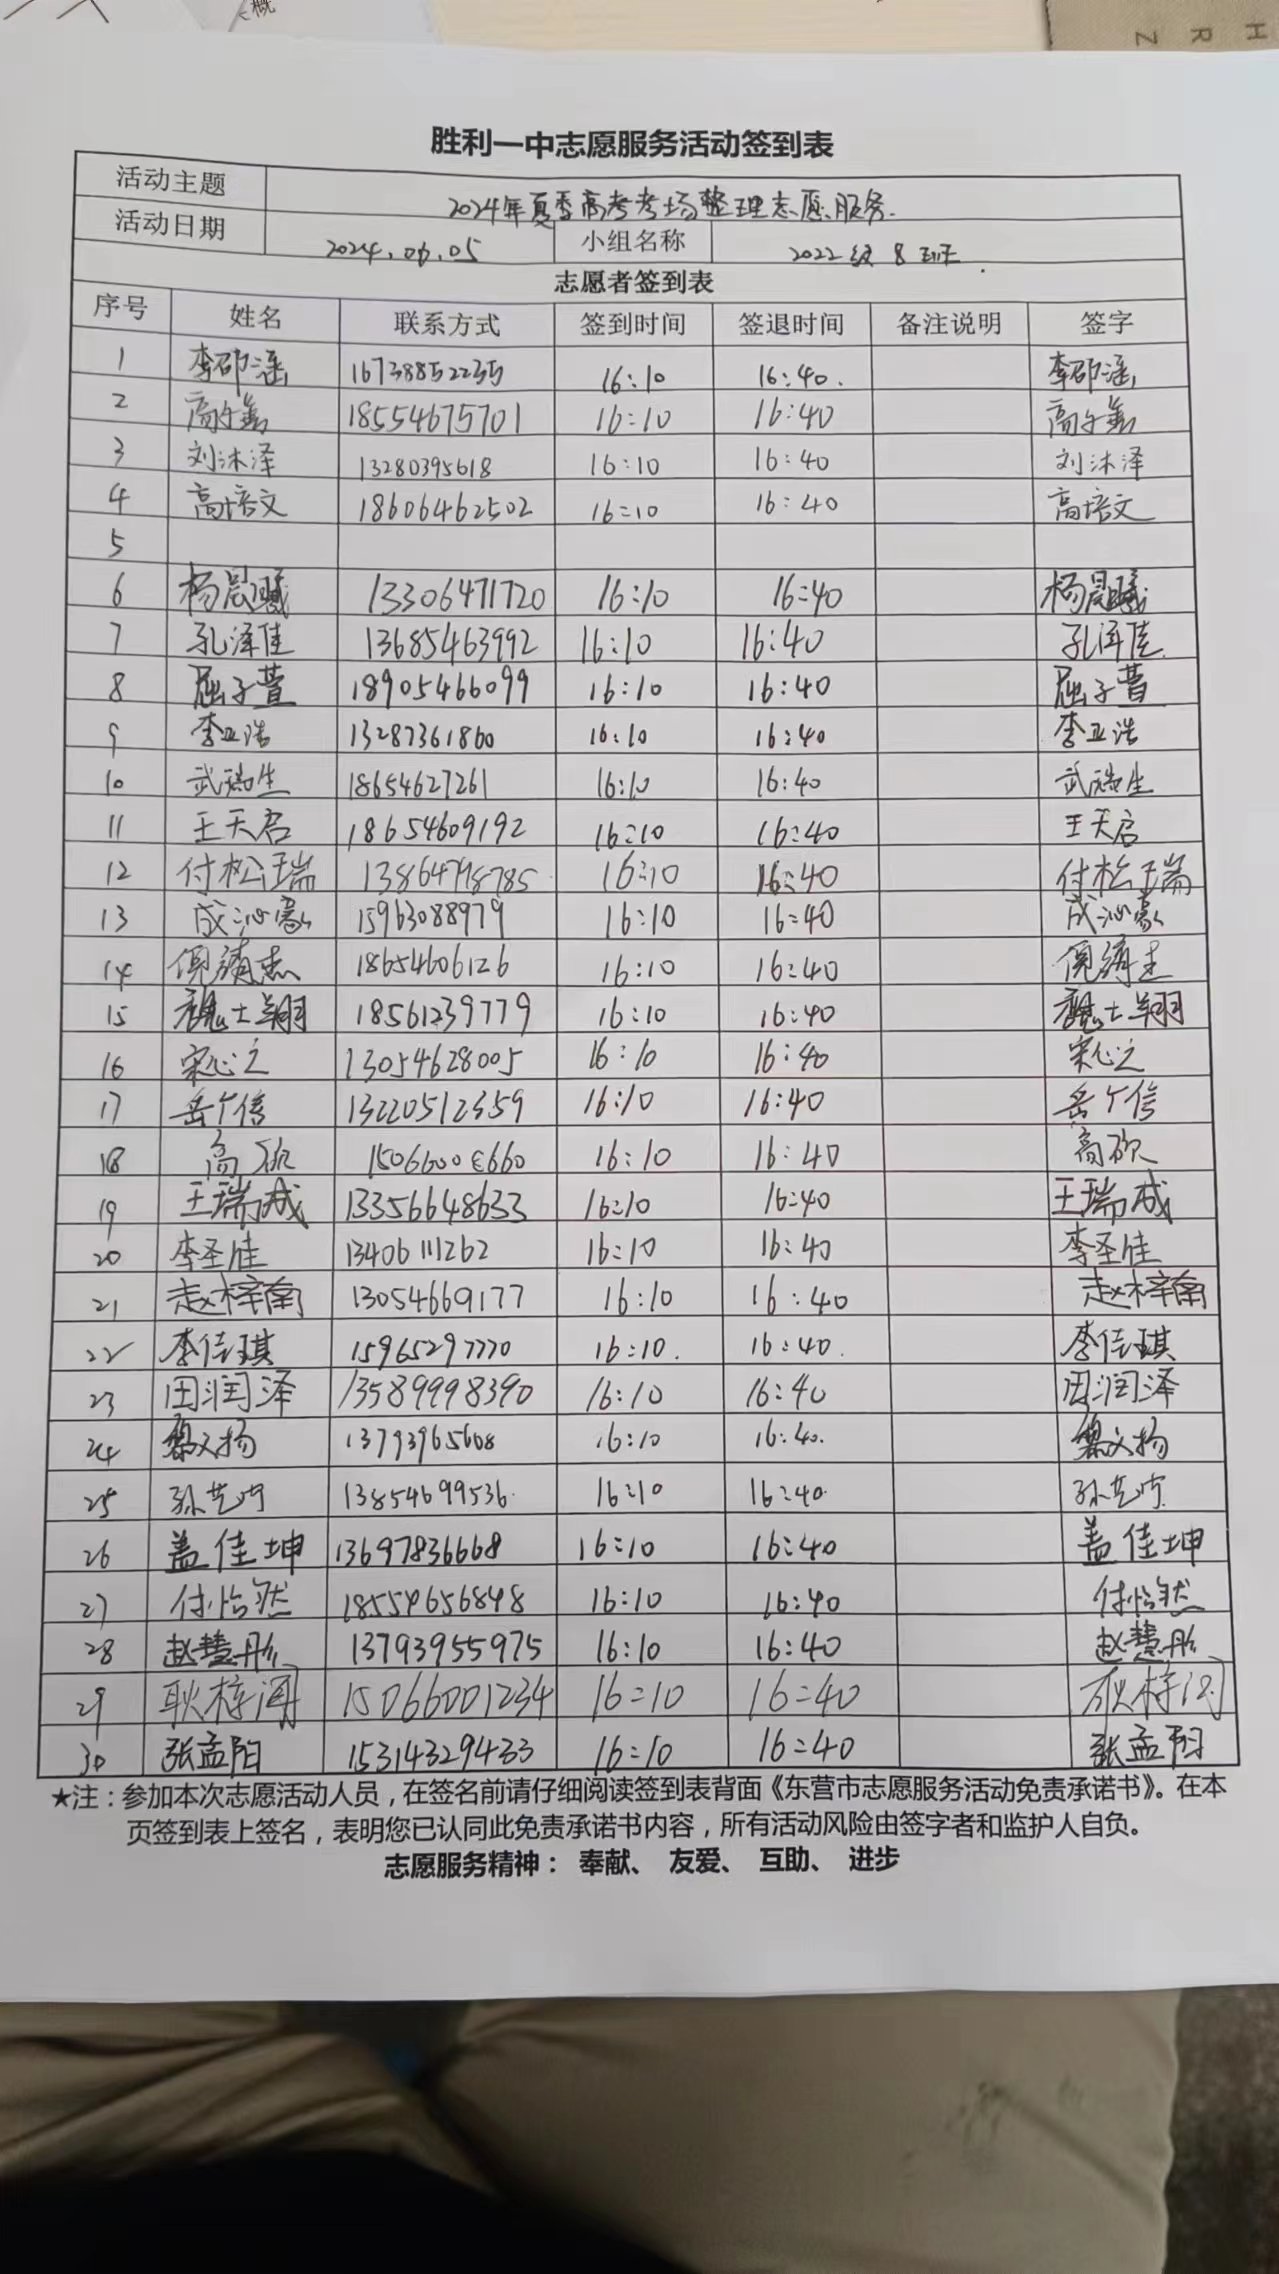 胜利一中志愿服务活动签到表
活动主题 2024年夏季高考考场整理志愿服务.
活动日期 2024.06.05 小组名称 2022级 8班.
志愿者签到表
序号 姓名 联系方式 签到时间 签退时间 备注说明 签字
1 李邵涵 16738852235 16:10 16:40. 李邵涵
2 18554675701 16:10 16:40
3 刘沐泽 13280395618 16:10 16:40 刘沐泽
4 高培文 18606462502 16:10 16:40 高培文
5
6 杨晨曦 13306471720 16:10 16:40 杨晨曦
7 孔泽佳 13685463992 16:10 16:40 孔泽佳
8 屈子萱 18905466099 16:10 16:40 屈子萱
9 李亚浩 13287361860 16:10 16:40 李亚浩
10 武瑞生 18654627261 16:10 16:40 武瑞生
11 王天启 18654609192 16:10 16:40 王天启
12 付松瑞 13864798785 16:10 16:40 付松瑞
13 成沁豪 15963088979 16:10 16:40 成沁豪
14 18654606126 16:10 16:40
15 魏士翔 18561239779 16:10 16:40 魏士翔
16 宋心之 13054628005 16:10 16:40 宋心之
17 13220512359 16:10 16:40
18 高 16:10 16:40 高
19 王瑞成 13356648633 16:10 16:40 王瑞成
20 李圣佳 13406111262 16:10 16:40 李圣佳
21 赵梓南 13054669177 16:10 16:40 赵梓南
22 李佳琪 15965297770 16:10. 16:40. 李佳琪
23 田润泽 13589998390 16:10 16:40 田润泽
24 黎文扬 13793965608 16:10 16:40. 黎文扬
25 13854699536 16:10 16:40
26 盖佳坤 13697836668 16:10 16:40 盖佳坤
27 付怡然 18554656848 16:10 16:40 付怡然
28 赵慧彤 13793955975 16:10 16:40 赵慧彤
29 15066001234 16:10 16:40
30 张孟阳 15314329433 16:10 16:40 张孟阳
★注：参加本次志愿活动人员，在签名前请仔细阅读签到表背面《东营市志愿服务活动免责承诺书》。在本
页签到表上签名，表明您已认同此免责承诺书内容，所有活动风险由签字者和监护人自负。
志愿服务精神： 奉献、 友爱、 互助、 进步